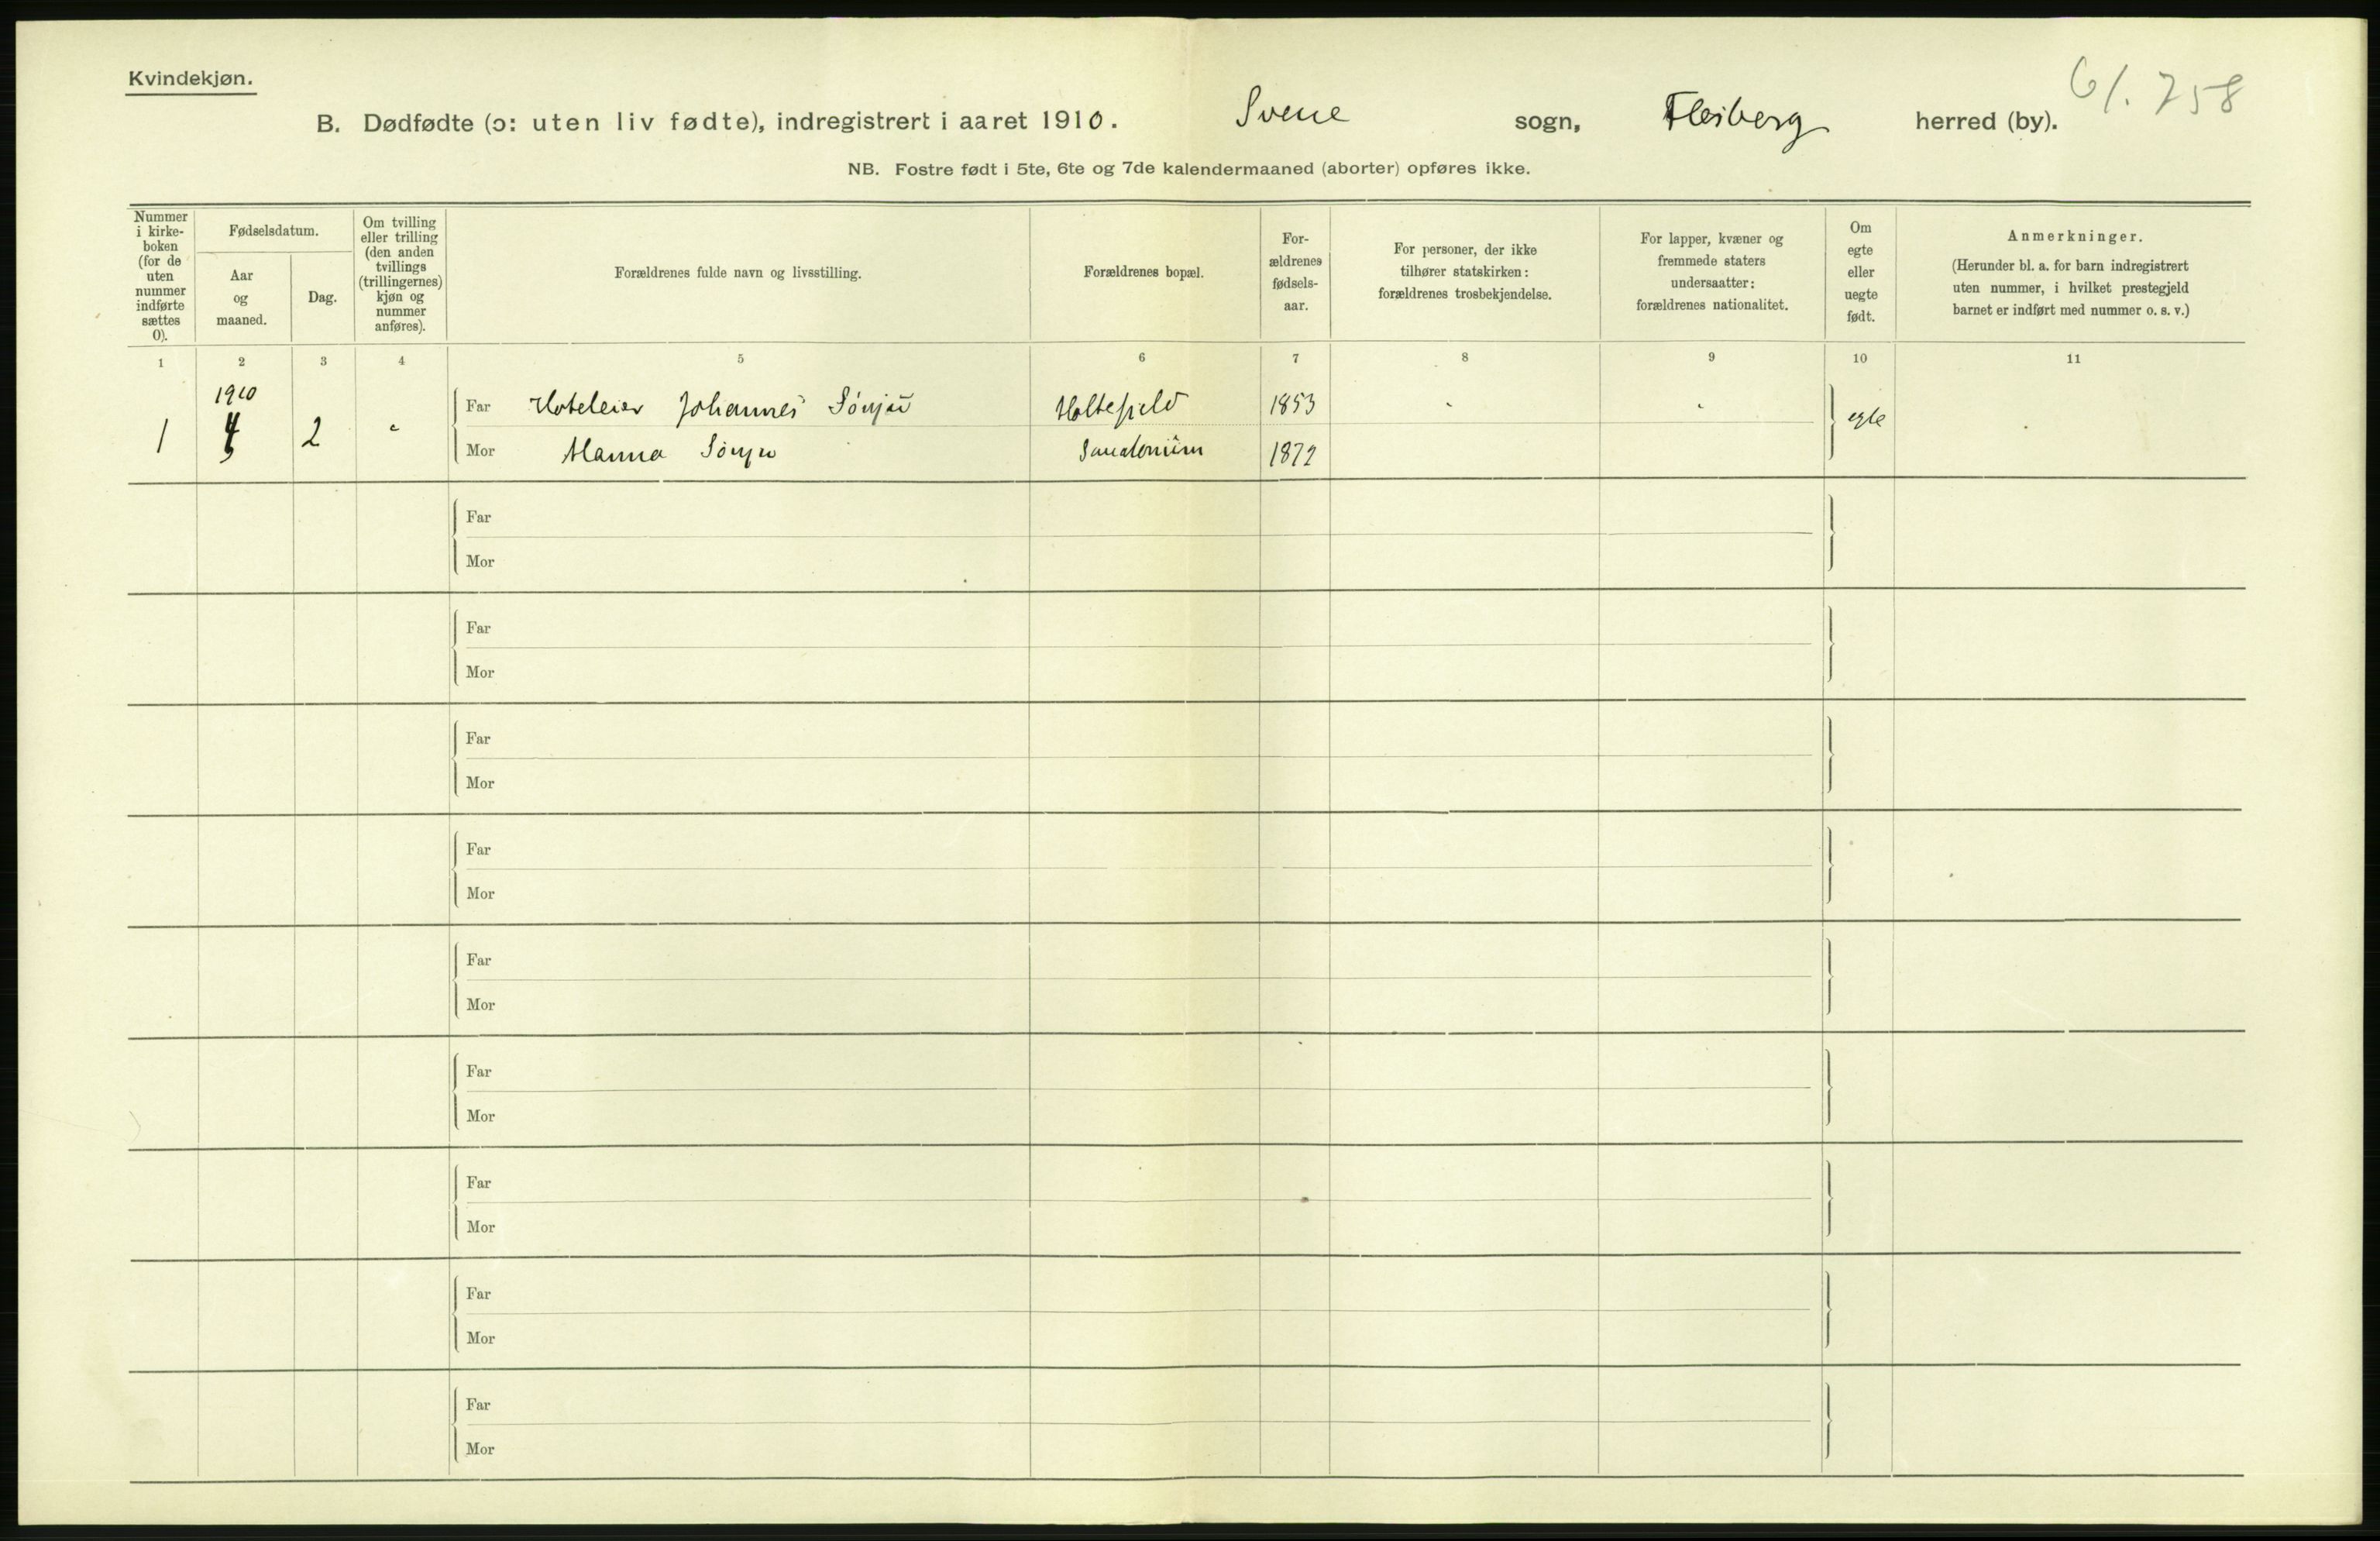 Kvindekjøn.
6/. 758
B. Dødfødte (ɔ: uten liv fødte), indregistrert i aaret 1910. Svene sogn, Flesberg herred (by).
NB. Fostre født i 5te, 6te og 7de kalendermaaned (aborter) opføres ikke.
Nummer
i kirke-
boken
(for de
uten
nummer
indførte
sættes
0).
Fødselsdatum.
Aar
og
maaned.
Dag.
Om tvilling
eller trilling
(den anden
tvillings
(trillingernes)
kjøn og
nummer
anføres).
Forældrenes fulde navn og livsstilling.
Forældrenes bopæl.
For-
ældrenes
fødsels-
aar.
For personer, der ikke
tilhører statskirken:
forældrenes trosbekjendelse.
For lapper, kvæner og
fremmede staters
undersaatter:
forældrenes nationalitet.
Om
egte
eller
uegte
født.
Anmerkninger.
(Herunder bl. a. for barn indregistrert
uten nummer, i hvilket prestegjeld
barnet er indført med nummer o. s. v.)
1 2 3 4 5 6 7 8 9 10 11
1910
Far Hoteleier Johannes Holtefjeld 1853
1 2 egte
Mor Hanna Sanatorium 1872
Far
Mor
Far
Mor
Far
Mor
Far
Mor
Far
Mor
Far
Mor
Far
Mor
Far
Mor
Far
Mor